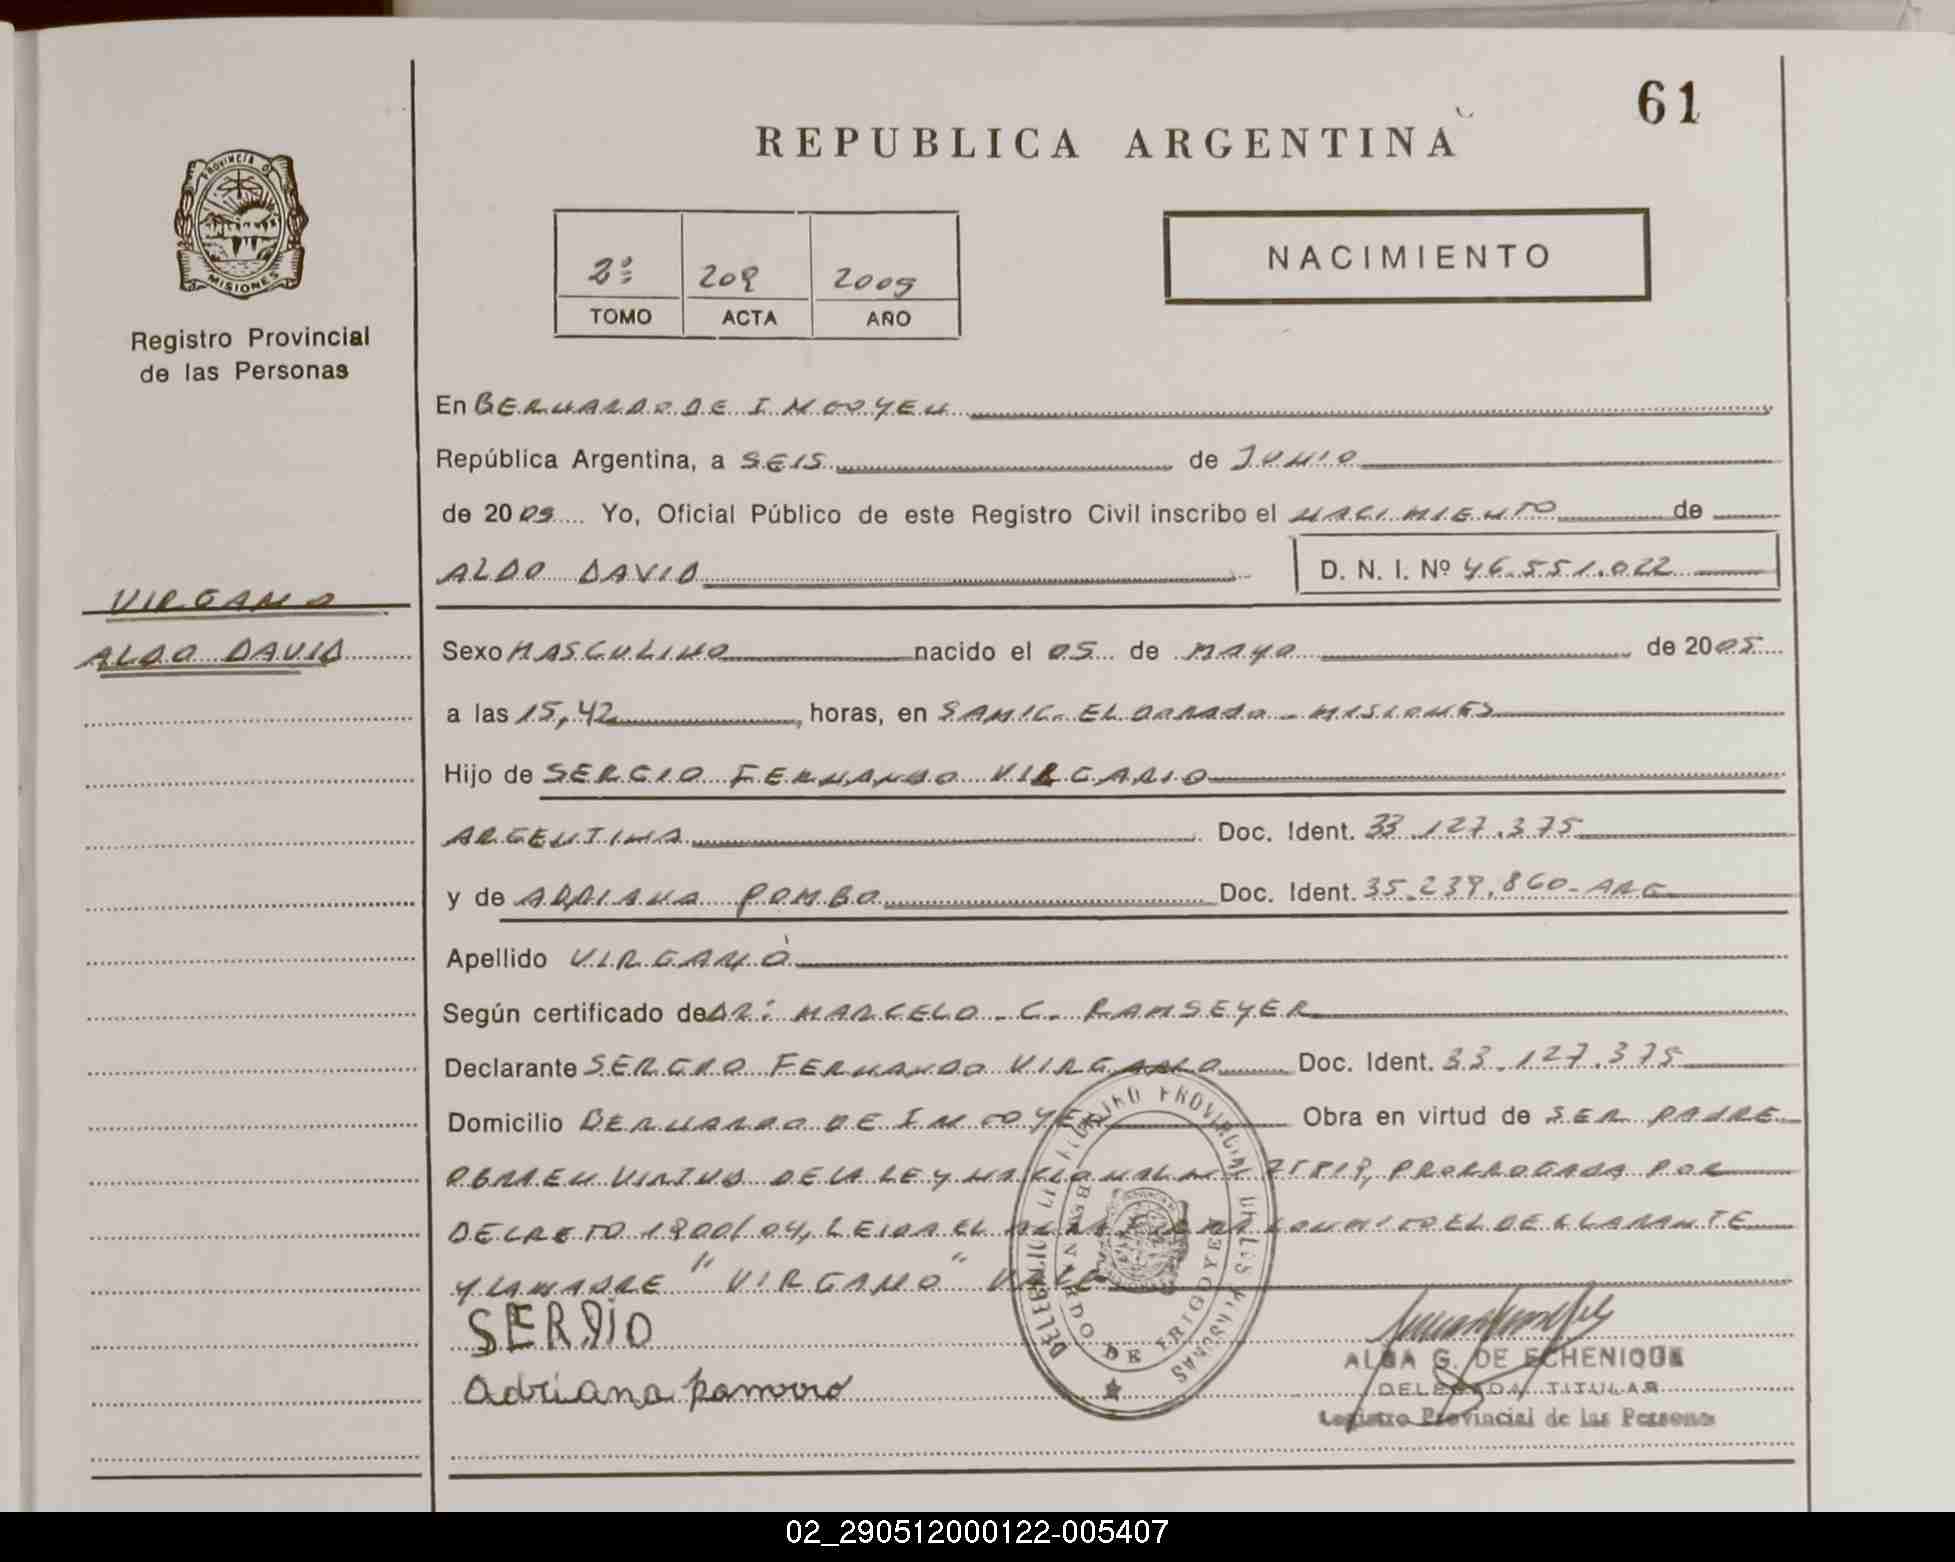 61
REPUBLICA ARGENTINA
PROVINCIA D
MISIONES
Registro Provincial
de las Personas
NACIMIENTO
2º 209 2005
TOMO ACTA AÑO
En BERNARDO DE IRIGOYEN
República Argentina, a SEIS de JUNIO
de 2005 Yo, Oficial Público de este Registro Civil inscribo el NACIMIENTO de
ALDO DAVID D. N. I. Nº 46.551.022
VIRGANO
ALDO DAVID
Sexo MASCULINO nacido el 05 de MAYO de 2005
a las 15,42 horas, en SAMIC. ELDORADO - MISIONES
Hijo de SERGIO FERNANDO
ARGENTINA Doc. Ident. 33.127.375
y de ADRIANA POMBO Doc. Ident. 35.239.860 - ARG
Apellido VIRGANO
Según certificado de DR: MARCELO - C. RAMSEYER
Declarante SERGIO FERNANDO VIRGANO Doc. Ident. 33.127.375
Domicilio BERNARDO DE IRIGOYEN Obra en virtud de SER PADRE
OBRA EN VIRTUD DE LA LEY NACIONAL Nº 25819, PRORROGADA POR
DECRETO 1900/04, LEIDA EL ACTA EL DECLARANTE
Y LA MADRE "VIRGANO" VALE
SERGIO
Adriana
DELEGACION REGISTRO PROVINCIAL DE LAS PERSONAS
BERNARDO DE IRIGOYEN
ALBA G. DE ECHENIQUE
DELEGADA TITULAR
Registro Provincial de las Personas
02_290512000122-005407